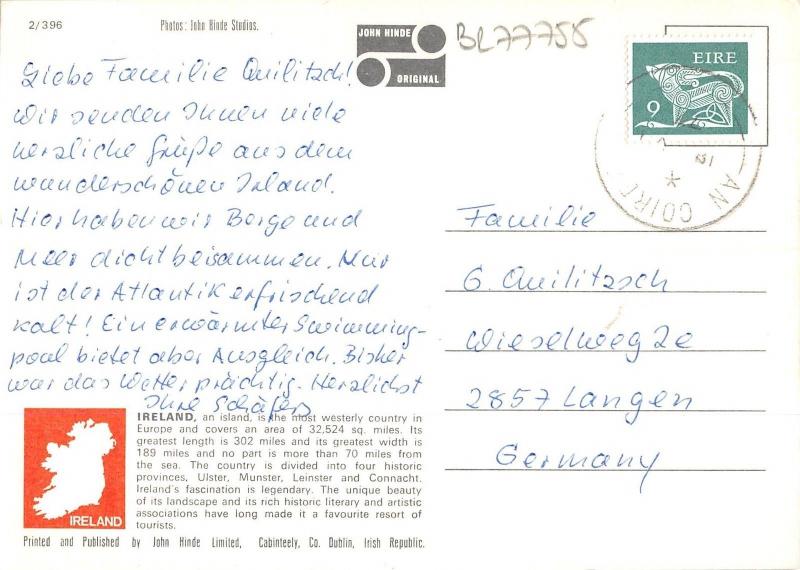 2/396
Photos: John Hinde Studios.
JOHN HINDE
ORIGINAL
BL77755
EIRE
9
AN COIR
Liebe Familie Quilitzsch!
Wir senden Ihnen viele
herzliche Grüße aus dem
wunderschönen Irland.
Hier haben wir Berge und
Meer dicht beisammen. Nur
ist der Atlantik erfrischend
kalt! Ein erwärmter Swimming-
pool bietet aber Ausgleich. Bisher
war das Wetter prächtig. Herzlichst
Ihre Schäfers
Familie
G. Quilitzsch
Wieselweg 2e
2857 Langen
Germany
IRELAND, an island, is the most westerly country in
Europe and covers an area of 32,524 sq. miles. Its
greatest length is 302 miles and its greatest width is
189 miles and no part is more than 70 miles from
the sea. The country is divided into four historic
provinces, Ulster, Munster, Leinster and Connacht.
Ireland's fascination is legendary. The unique beauty
of its landscape and its rich historic literary and artistic
associations have long made it a favourite resort of
tourists.
IRELAND
Printed and Published by John Hinde Limited, Cabinteely, Co. Dublin, Irish Republic.